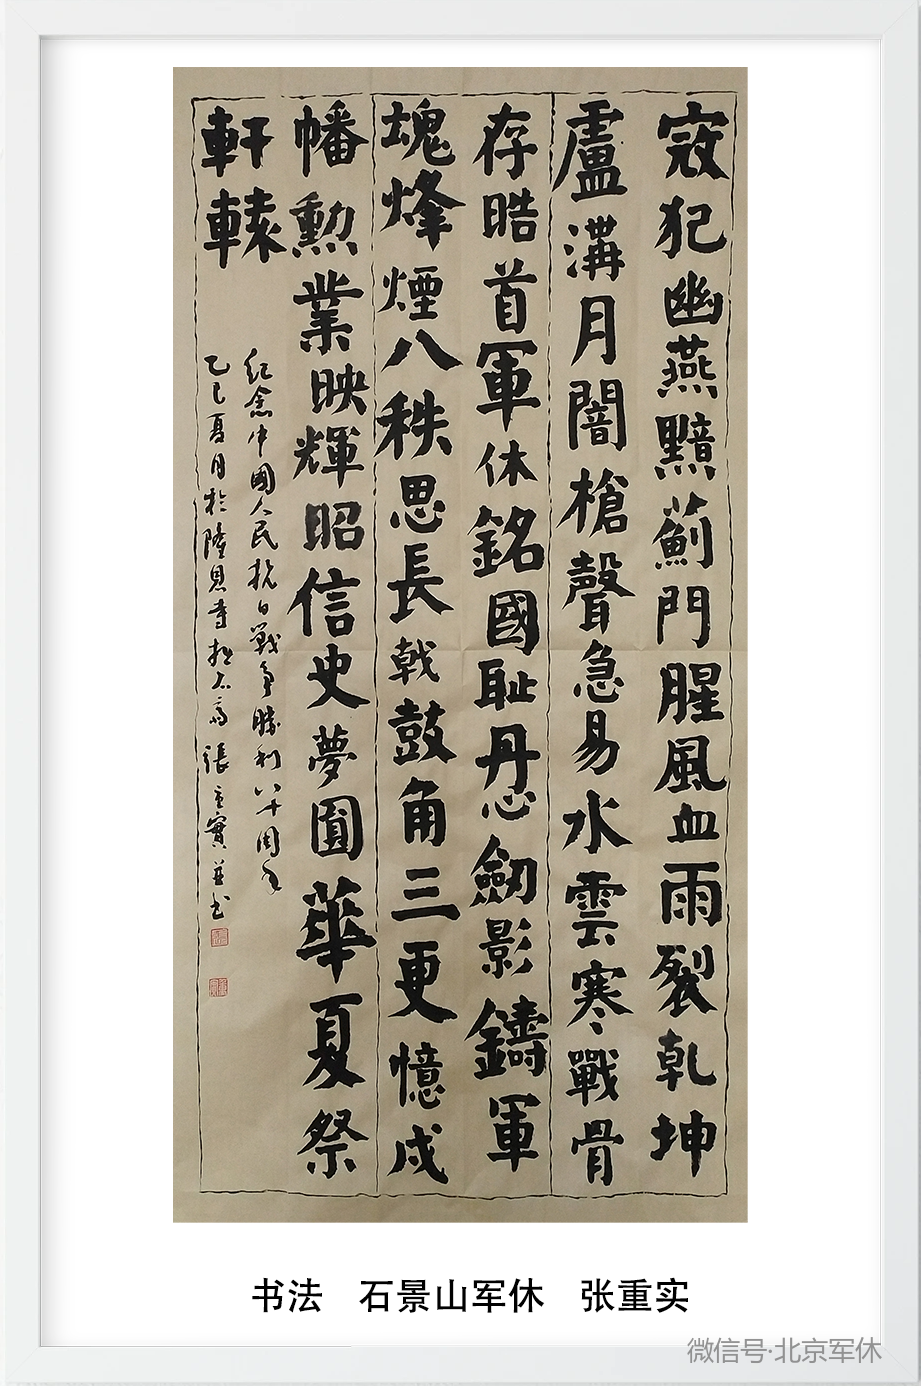 寇犯幽燕黯薊門腥風血雨裂乾坤
盧溝月闇槍聲急易水雲寒戰骨
存晧首軍休銘國耻丹心劒影鑄軍
魂烽煙八秩思長戟鼓角三更憶戍
幡勲業映輝昭信史夢圓華夏祭
軒轅
紀念中國人民抗日戰爭勝利八十周年
乙巳夏月於隆恩寺 張重實並书
书法 石景山军休 张重实
微信号·北京军休